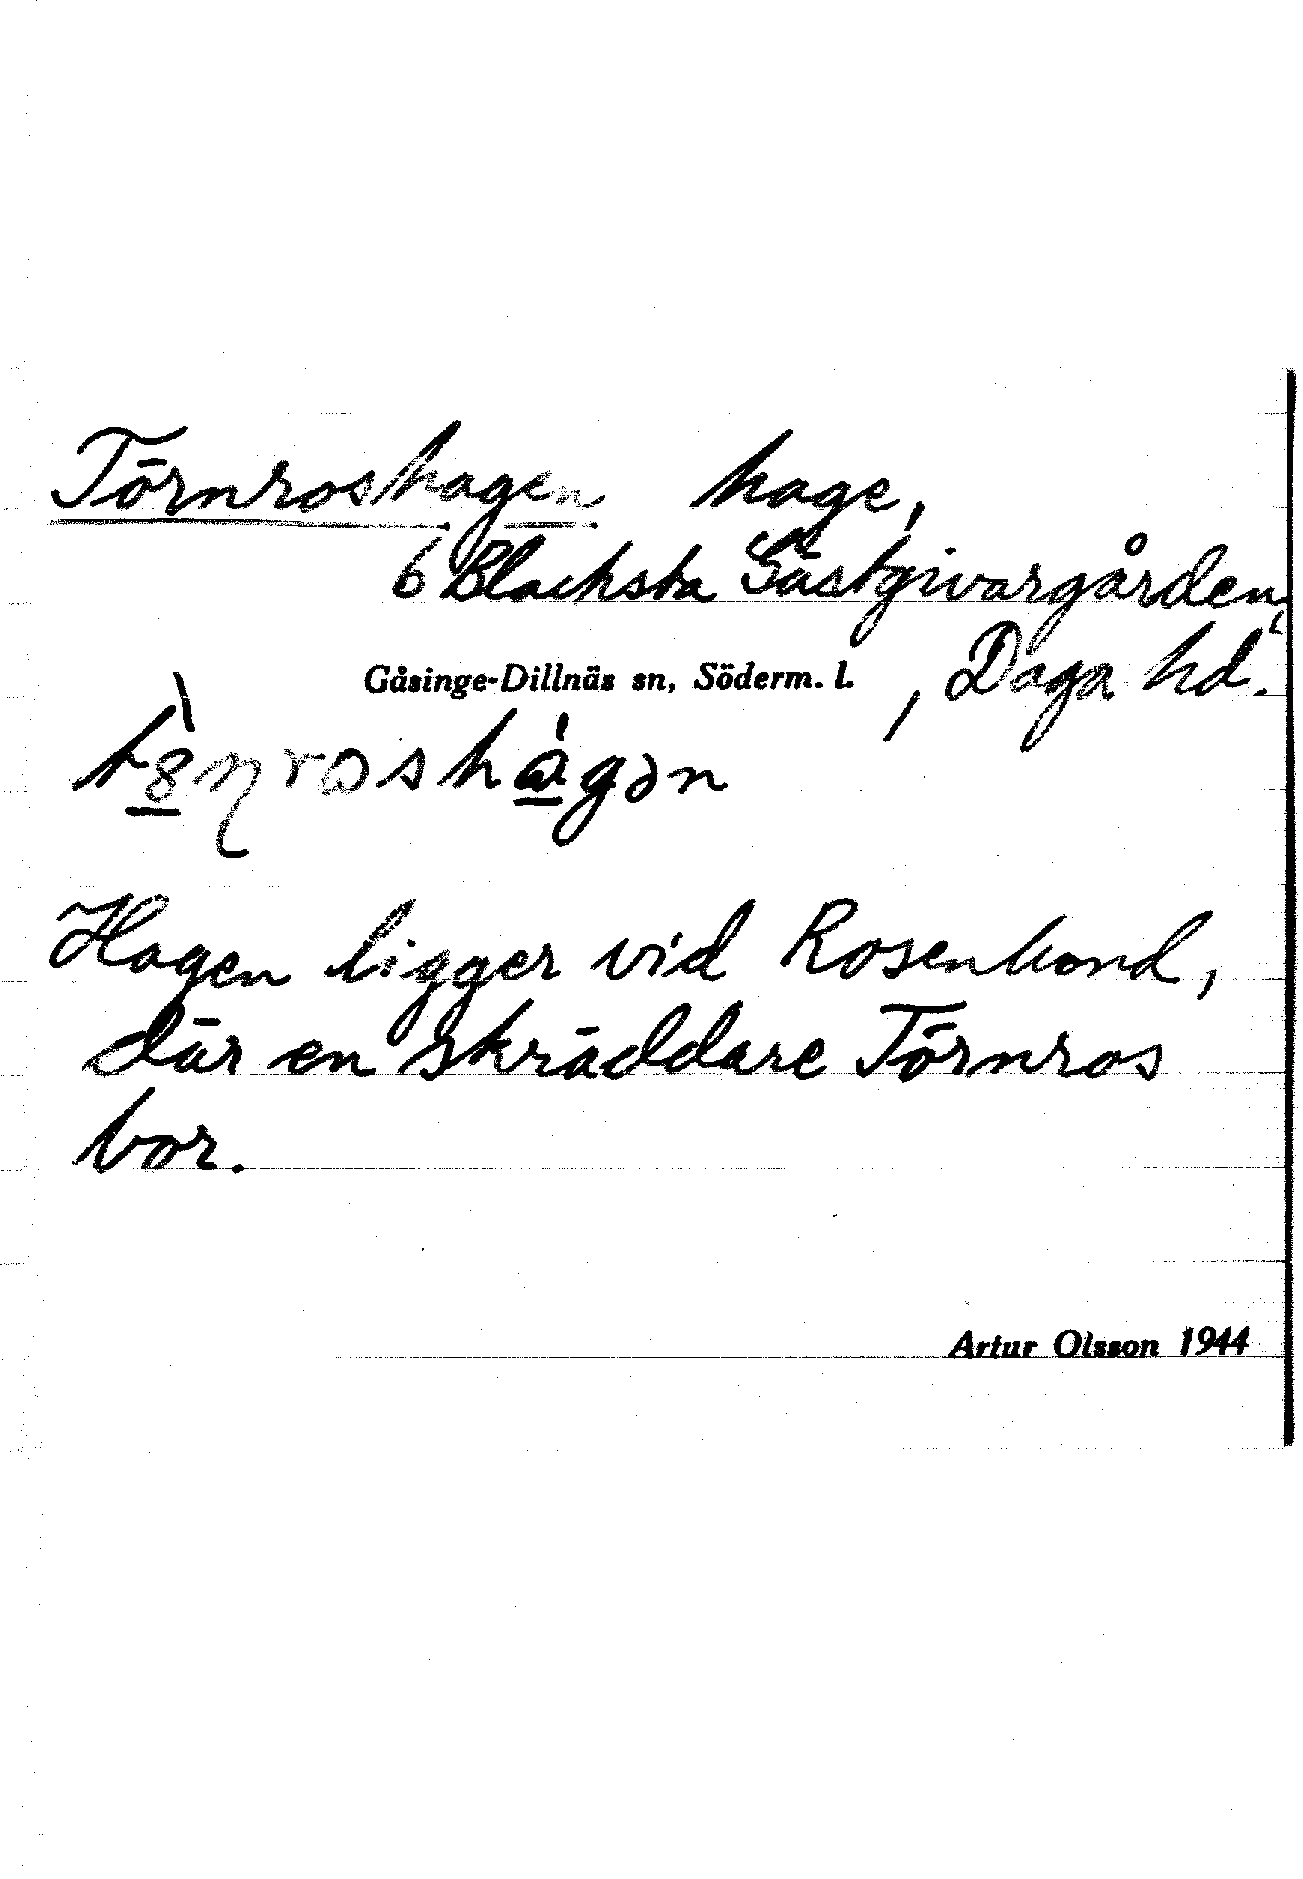 Törnroshagen hage,
6 Blacksta Gästgivargården,
Gåsinge-Dillnäs sn, Söderm. l. , Daga hd.
Hagen ligger vid Rosenlund,
där en skräddare Törnros
bor.
Artur Olsson 1944